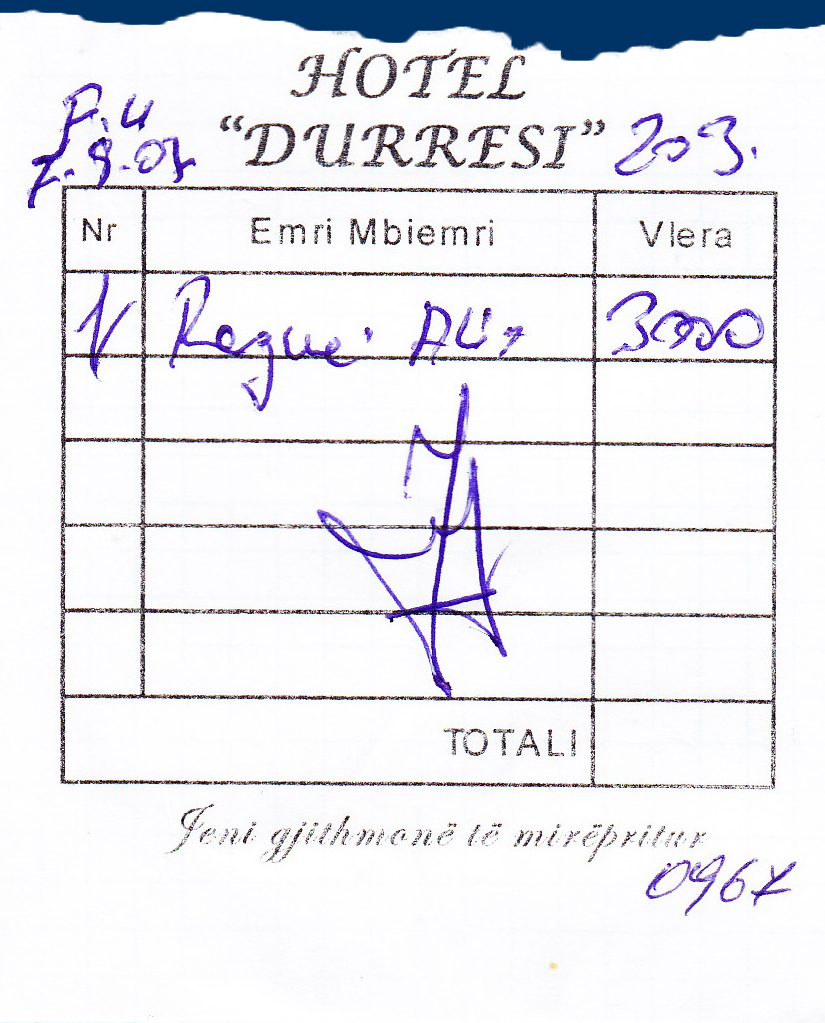 HOTEL
"DURRESI" 203.
Nr Emri Mbiemri Vlera
3000
TOTALI
Jeni gjithmonë të mirëpritur
0967